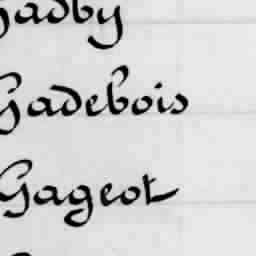 Gadby
Gadebois
Gageot